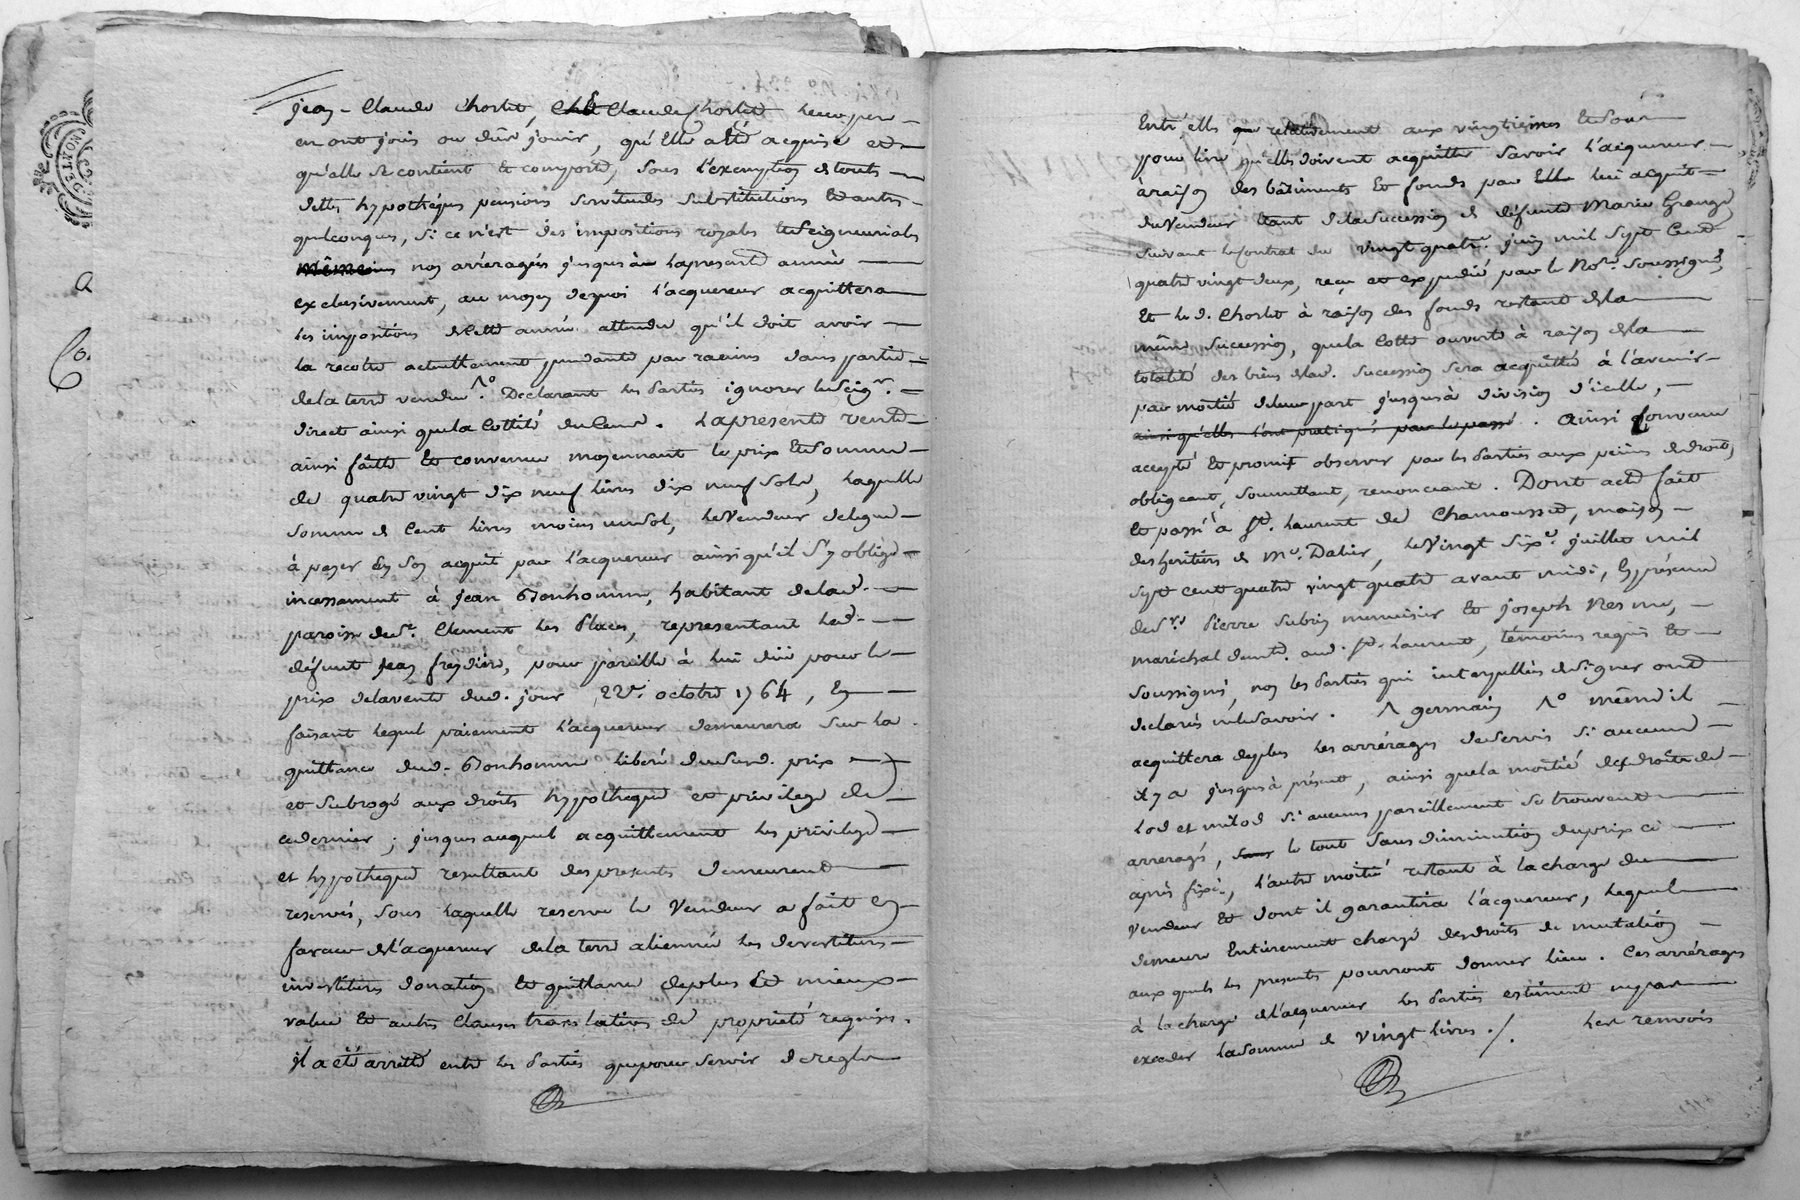 jean-Claude Chorlet, Claude Chorlet
en ont joui ou dûr jouir, qu'Elle a été acquise et
qu'elle se contient et comporte, sous l'exemption de touts
dettes hypothéques pensions servitudes substitutions et autres
quelconques, si ce n'est des impositions royales et seigneuriales
nos arrérages jusques à la presente année
exclusivement, au moyen dequoi l'acquereur acquittera
les impositions de cette année attendu qu'il doit avoir
la recolte actuellement pendante par racines dans partie
dela terre vendue. Declarant les parties ignorer le seigr.
direct ainsi que la Cottité du Cens. La presente vente
ainsi faitte et convenue moyennant le prix et somme
de quatre vingt dix neuf livres dix neuf sols, laquelle
somme de Cent livres moins un sol, le vendeur delegue
à payer en son acquit par l'acquereur ainsi qu'il s'y oblige
incessament à jean Bonhomme, habitant de lad.
paroisse de St. Clement les Places, representant led.
défunt jean freydière, pour pareille à lui düe pour le
prix de la vente dud. jour 22e. octobre 1764, En
faisant lequel paiement l'acquereur demeurera sur la
quittance dud. Bonhomme libéré dud. prix
et subrogé aux droits hypotheque et privilege de
ce dernier; jusques auquel acquittement les privilege
et hypotheque resultant des presentes demeurent
reservés, sous laquelle reserve le Vendeur a fait en
faveur de l'acquereur de la terre alienneé les devestitures
investitures donation et quittance de plus et mieux
value et autres clauses translatives de proprieté requises.
il a été arretté entre les parties que pour servir de regle
Entr'elles relativement aux vingtiemes et
qu'elles doivent acquitter savoir l'acquereur
à raison des bâtiments et fonds par lui acquit
du Vendeur de la succession de défunte Marie Grange
suivant le Contrat du vingt quatre juin mil sept Cent
quatre vingt deux, reçu et expedié par le Nore. soussigné,
Et led. Chorlet à raison des fonds restant de la
même succession, que la Cotte ouverte à raison de la
totalité des biens de lad. succession sera acquittée à l'avenir
par moitié jusques à division d'icelle,
ainsi qu'elles l'ont pratiqué par le passé. Ainsi Convenu
accepté et promis observer par les parties aux peines de droit,
obligeant, soumettant, renonceant. Dont acte fait
et passé à St. Laurent de Chamousset, maison
des heritiers de Me. Dalier, le vingt sixe. juillet mil
sept cent quatre vingt quatre avant midi, En présence
de Srs. Pierre Subrin menuisier et joseph Nesme,
maréchal dud. St. Laurent, témoins requis et
soussignés, non les parties qui interpellées de signer ont
declarés ne le savoir. ^ germain ^° même il
acquittera de plus les arrérages de servis si aucuns
il y a jusques à présent, ainsi que la moitié des droits de
lod et milod si aucuns pareillement se trouvent
arreragés, le tout sans diminution du prix ci
après fixé, l'autre moitié restant à la charge du
vendeur et dont il garantira l'acquereur, lequel
demeure Entierement chargé des droits de mutation
aux quels les presentes pourront donner lieu. Ces arrérages
à la charge de l'acquereur les parties estiment ne pas
exceder la somme de vingt livres./. les renvois